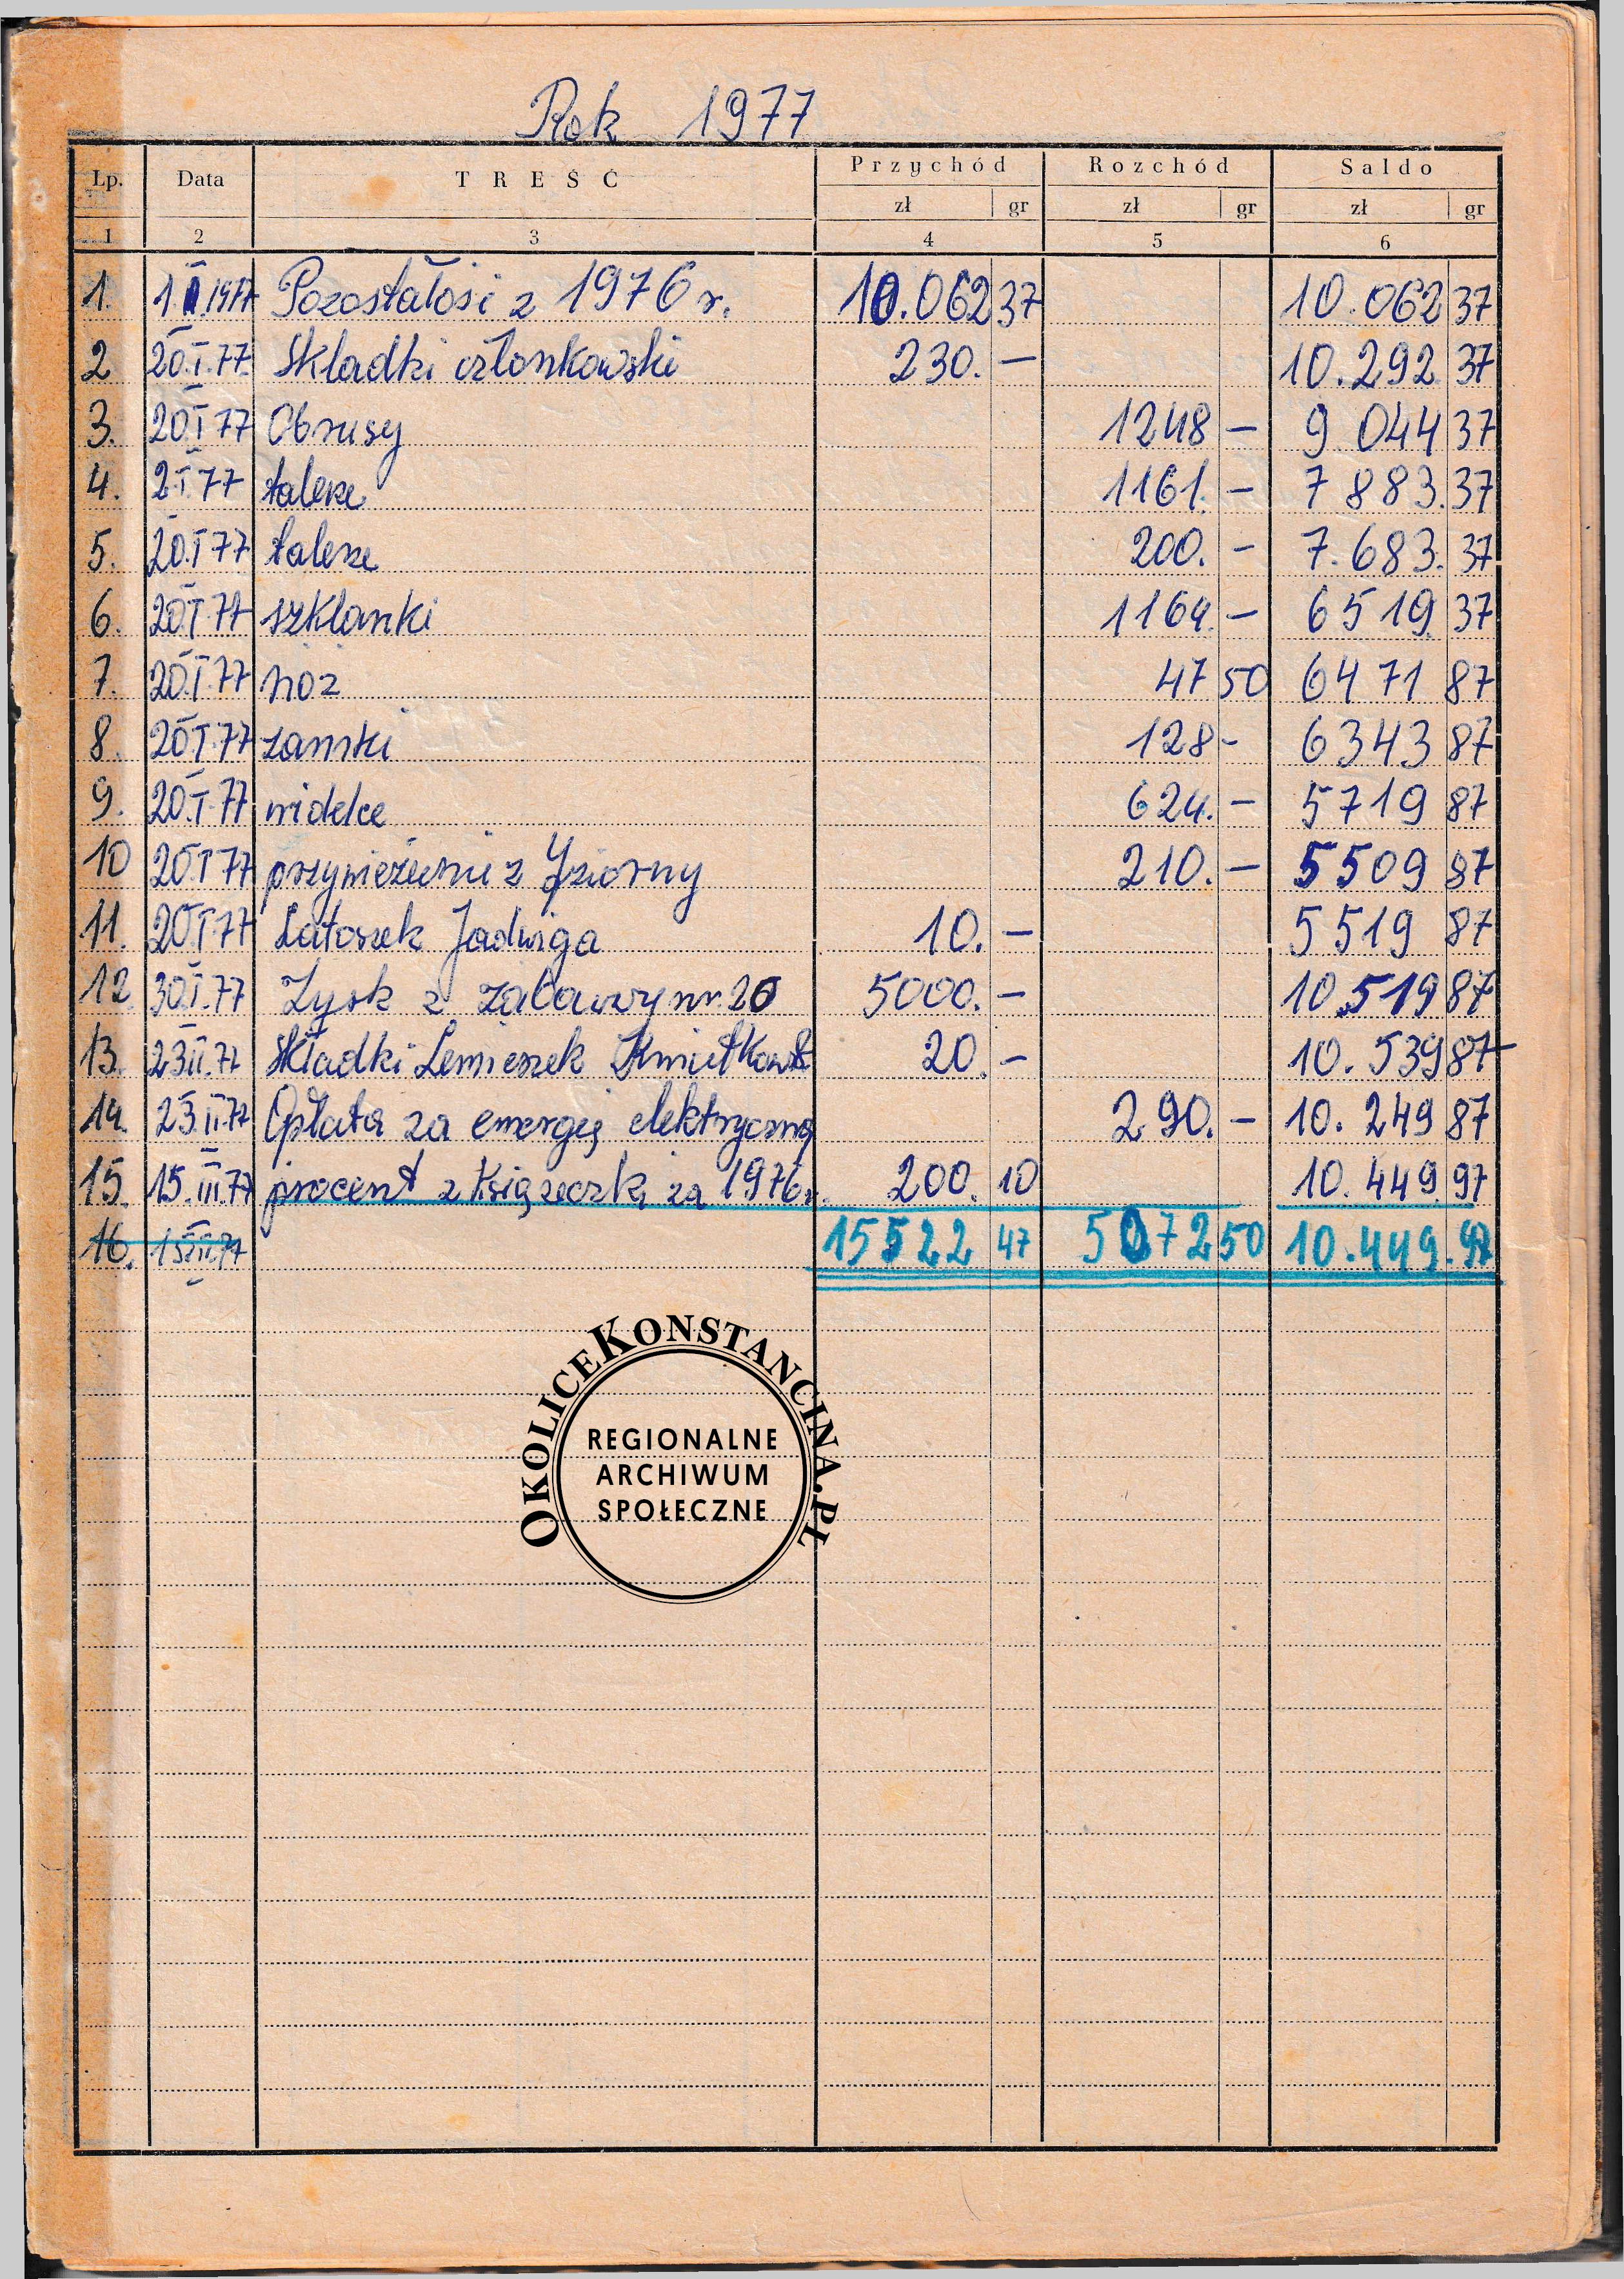 Rok 1977
Lp. Data TREŚĆ Przychód Rozchód Saldo
zł gr zł gr zł gr
1 2 3 4 5 6
1. 1.I.1977 Pozostałosi z 1976 r. 10.062 37 10.062 37
2 20.I.77. Składki członkowski 230. — 10.292 37
3. 20.I 77 Obrusy 1248 — 9 044 37
4. 2 I 77 talerze 1161. — 7 883. 37
5. 20.I 77 talerze 200. — 7.683. 37
6. 20.I.77 szklanki 1164. — 6 519. 37
7. 20.I.77 nóż 47 50 6471 87
8. 20.I.77 zamki 128 - 6343 87
9. 20.I.77 widelce 624. — 5719 87
10 20.I 77 przywiezienie z Jeziorny 210. — 5509 87
11. 20.I.77 Latoszek Jadwiga 10. — 5519 87
12. 30.I.77 Zysk z zabawy nr. 20 5000. — 10.519 87
13. 23 II.77 Składki Lemieszek Kmiotkowsk 20. — 10.539 87
14. 23.II.77 Opłata za energię elektryczną 290. — 10.249 87
15. 15.III.77 procent z Książeczki za 1976 r. 200. 10 10.449. 97
16. 15.III.77 15522 47 5072 50 10.449. 97
OKOLICEKONSTANCINA.PL
REGIONALNE
ARCHIWUM
SPOŁECZNE